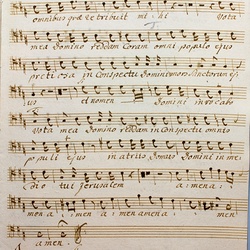 omnibus quæ retribuit mihi Vota
mea Domino reddam Coram omni populo ejus
pretiosa in Conspectu Domini mors Sanctorum ej
us et nomen Domini invocabo
Vota mea Domino reddam in conspectu omnis
populi ejus in atriis Domus Domini in me
dio tui Jerusalem amena
men a men a men amena men
a men.